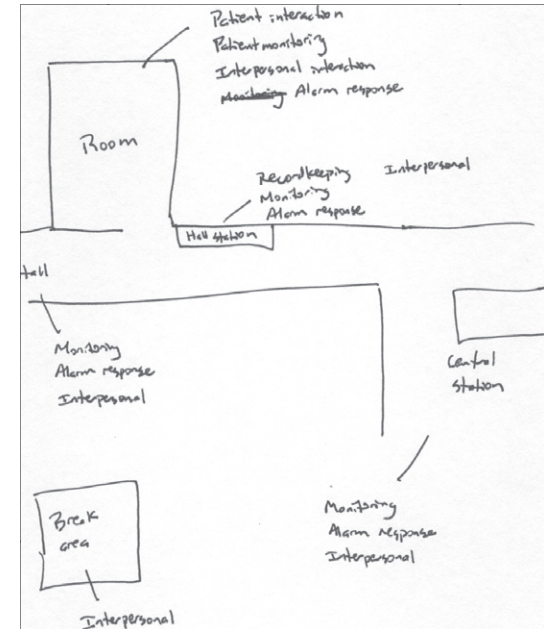 Patient interaction
Patient monitoring
Interpersonal interaction
Monitoring Alarm response
Room
Recordkeeping Interpersonal
Monitoring
Alarm response
Hall station
Hall
Monitoring
Alarm response
Interpersonal
Central
station
Monitoring
Alarm response
Interpersonal
Break
area
Interpersonal